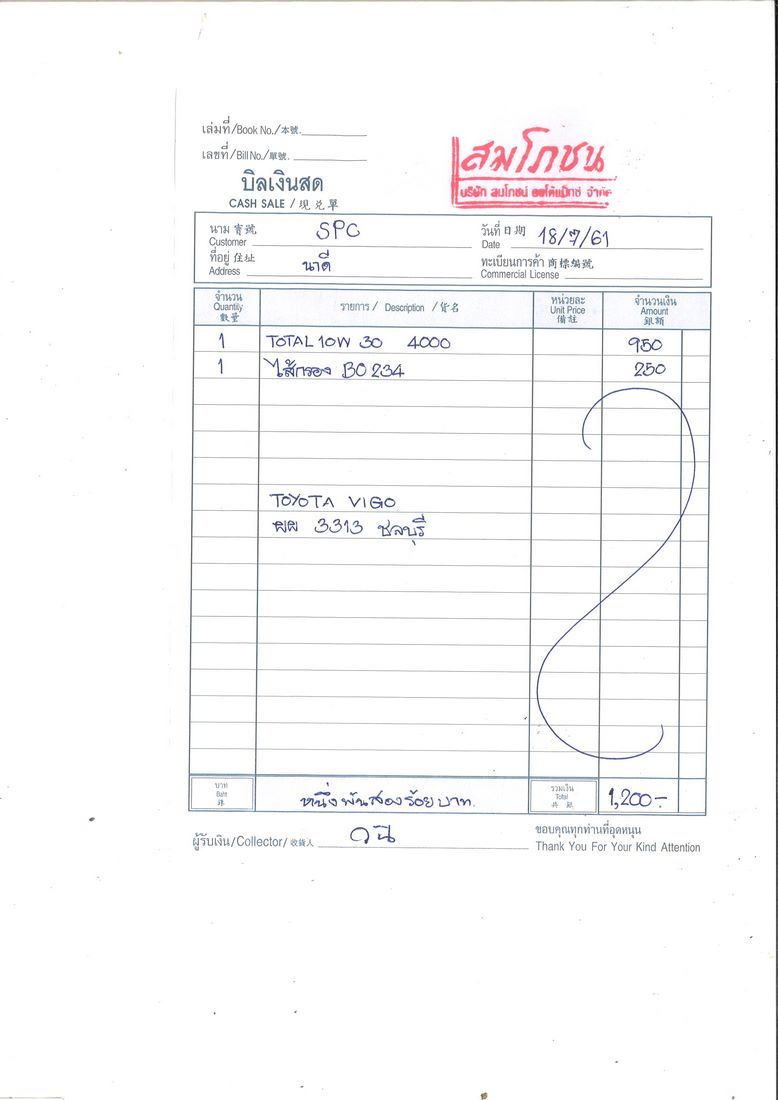 เล่มที่/Book No./本號.
เลขที่/Bill No./單號.
บิลเงินสด
CASH SALE / 現兑單
สมโภชน
บริษัท สมโภชน์ ออโต้แม็กซ์ จำกัด
นาม 寶號 Customer SPC
วันที่ 日期 Date 18/7/61
ที่อยู่ 住址 Address นาดี
ทะเบียนการค้า 商標編號 Commercial License
จำนวน Quantity 數量 รายการ / Description / 貨名 หน่วยละ Unit Price 備註 จำนวนเงิน Amount 銀額
1 TOTAL 10W 30 4000 950
1 ไส้กรอง BO 234 250
TOYOTA VIGO
ผผ 3313 ชลบุรี
บาท Baht 銖 หนึ่งพันสองร้อยบาท. รวมเงิน Total 共銀 1,200.-
ผู้รับเงิน/Collector/收貨人
ขอบคุณทุกท่านที่อุดหนุน
Thank You For Your Kind Attention